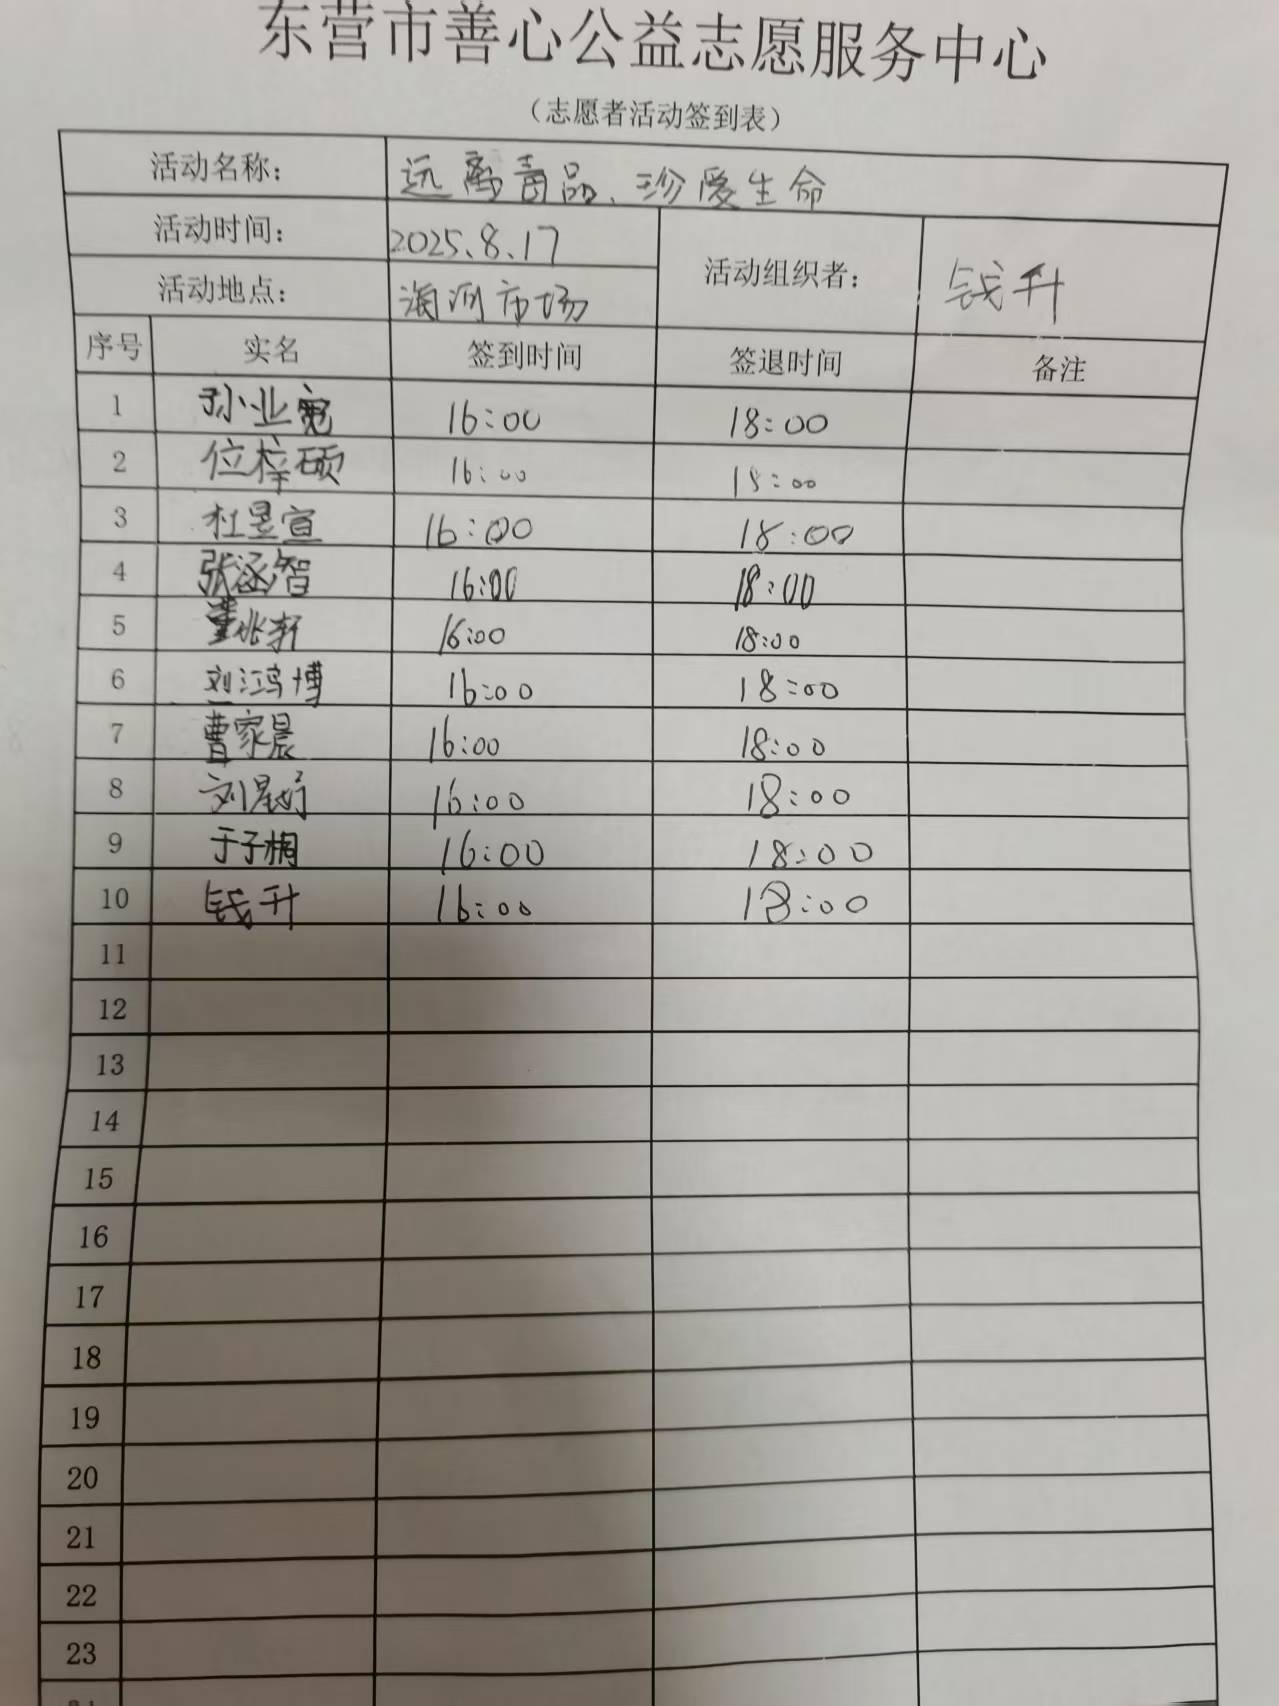 东营市善心公益志愿服务中心
（志愿者活动签到表）
活动名称： 远离毒品、珍爱生命
活动时间： 2025.8.17
活动组织者： 钱升
活动地点： 海河市场
序号 实名 签到时间 签退时间 备注
1 孙业宽 16:00 18:00
2 位梓硕 16:00 18:00
3 杜昱宣 16:00 18:00
4 张涵智 16:00 18:00
5 董兆轩 16:00 18:00
6 刘鸿博 16:00 18:00
7 曹家晨 16:00 18:00
8 刘星妤 16:00 18:00
9 于子桐 16:00 18:00
10 钱升 16:00 18:00
11
12
13
14
15
16
17
18
19
20
21
22
23